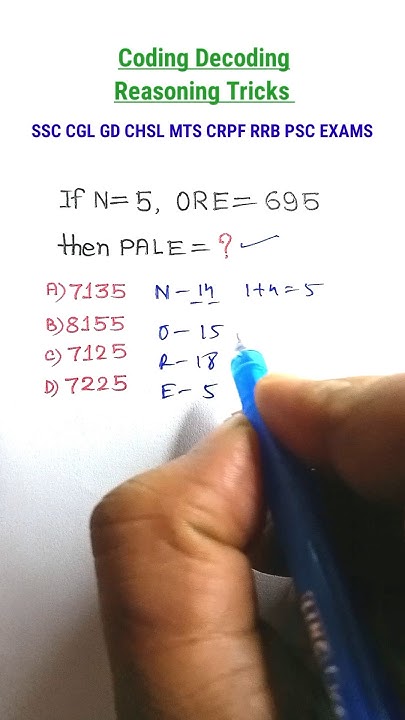 Coding Decoding
Reasoning Tricks
SSC CGL GD CHSL MTS CRPF RRB PSC EXAMS
If N=5, ORE=695
then PALE=? ✓
A) 7135
B) 8155
C) 7125
D) 7225
N-14 1+4=5
O-15
R-18
E-5